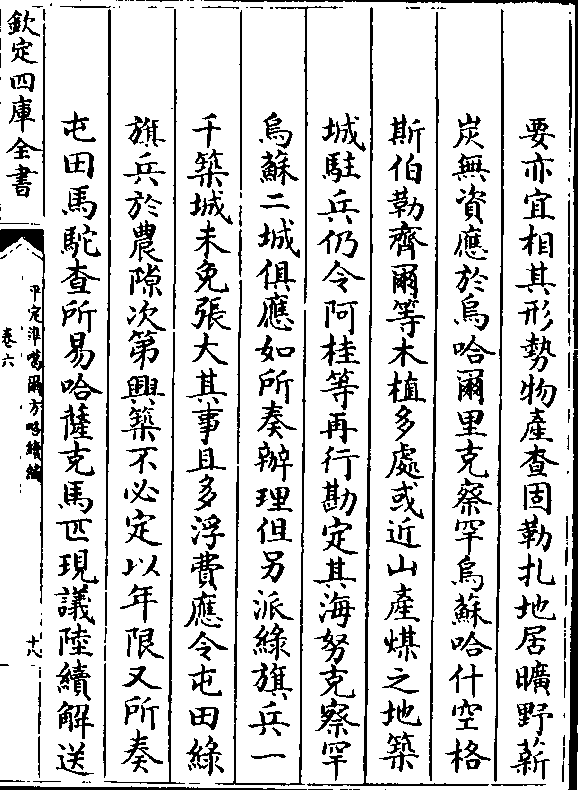 要亦宜相其形勢物產查固勒扎地居曠野薪
炭無資應於烏哈爾里克察罕烏蘇哈什空格
斯伯勒齊爾等木植多處或近山產煤之地築
城駐兵仍令阿桂等再行勘定其海努克察罕
烏蘇二城俱應如所奏辦理但另派綠旗兵一
千築城未免張大其事且多浮費應令屯田綠
旗兵於農隙次第興築不必定以年限又所奏
屯田馬駝查所易哈薩克馬匹現議陸續解送
欽定四庫全書
平定準噶爾方略續編
卷六
十八